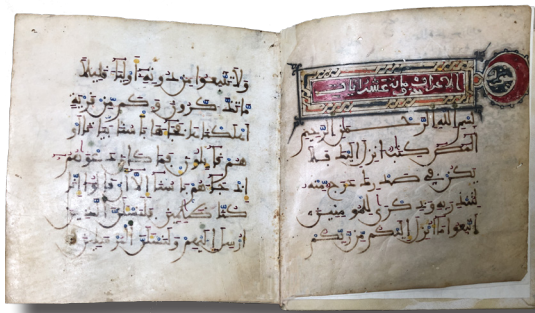 الاعراف ايات
بسم الله الرحمن الرحيم
المص كتب انزل اليك فلا
يكن في صدرك حرج منه
لتنذر به وذكرى للمومنين
اتبعوا ما انزل اليكم من ربكم
ولا تتبعوا من دونه اولياء قليلا
ما تذكرون وكم من قرية
اهلكنها فجاءها باسنا بيتا او
هم قايلون فما كان دعويهم
اذ جاءهم باسنا الا ان قالوا انا
كنا ظلمين فلنسئلن الذين
ارسل اليهم ولنسئلن المرسلين